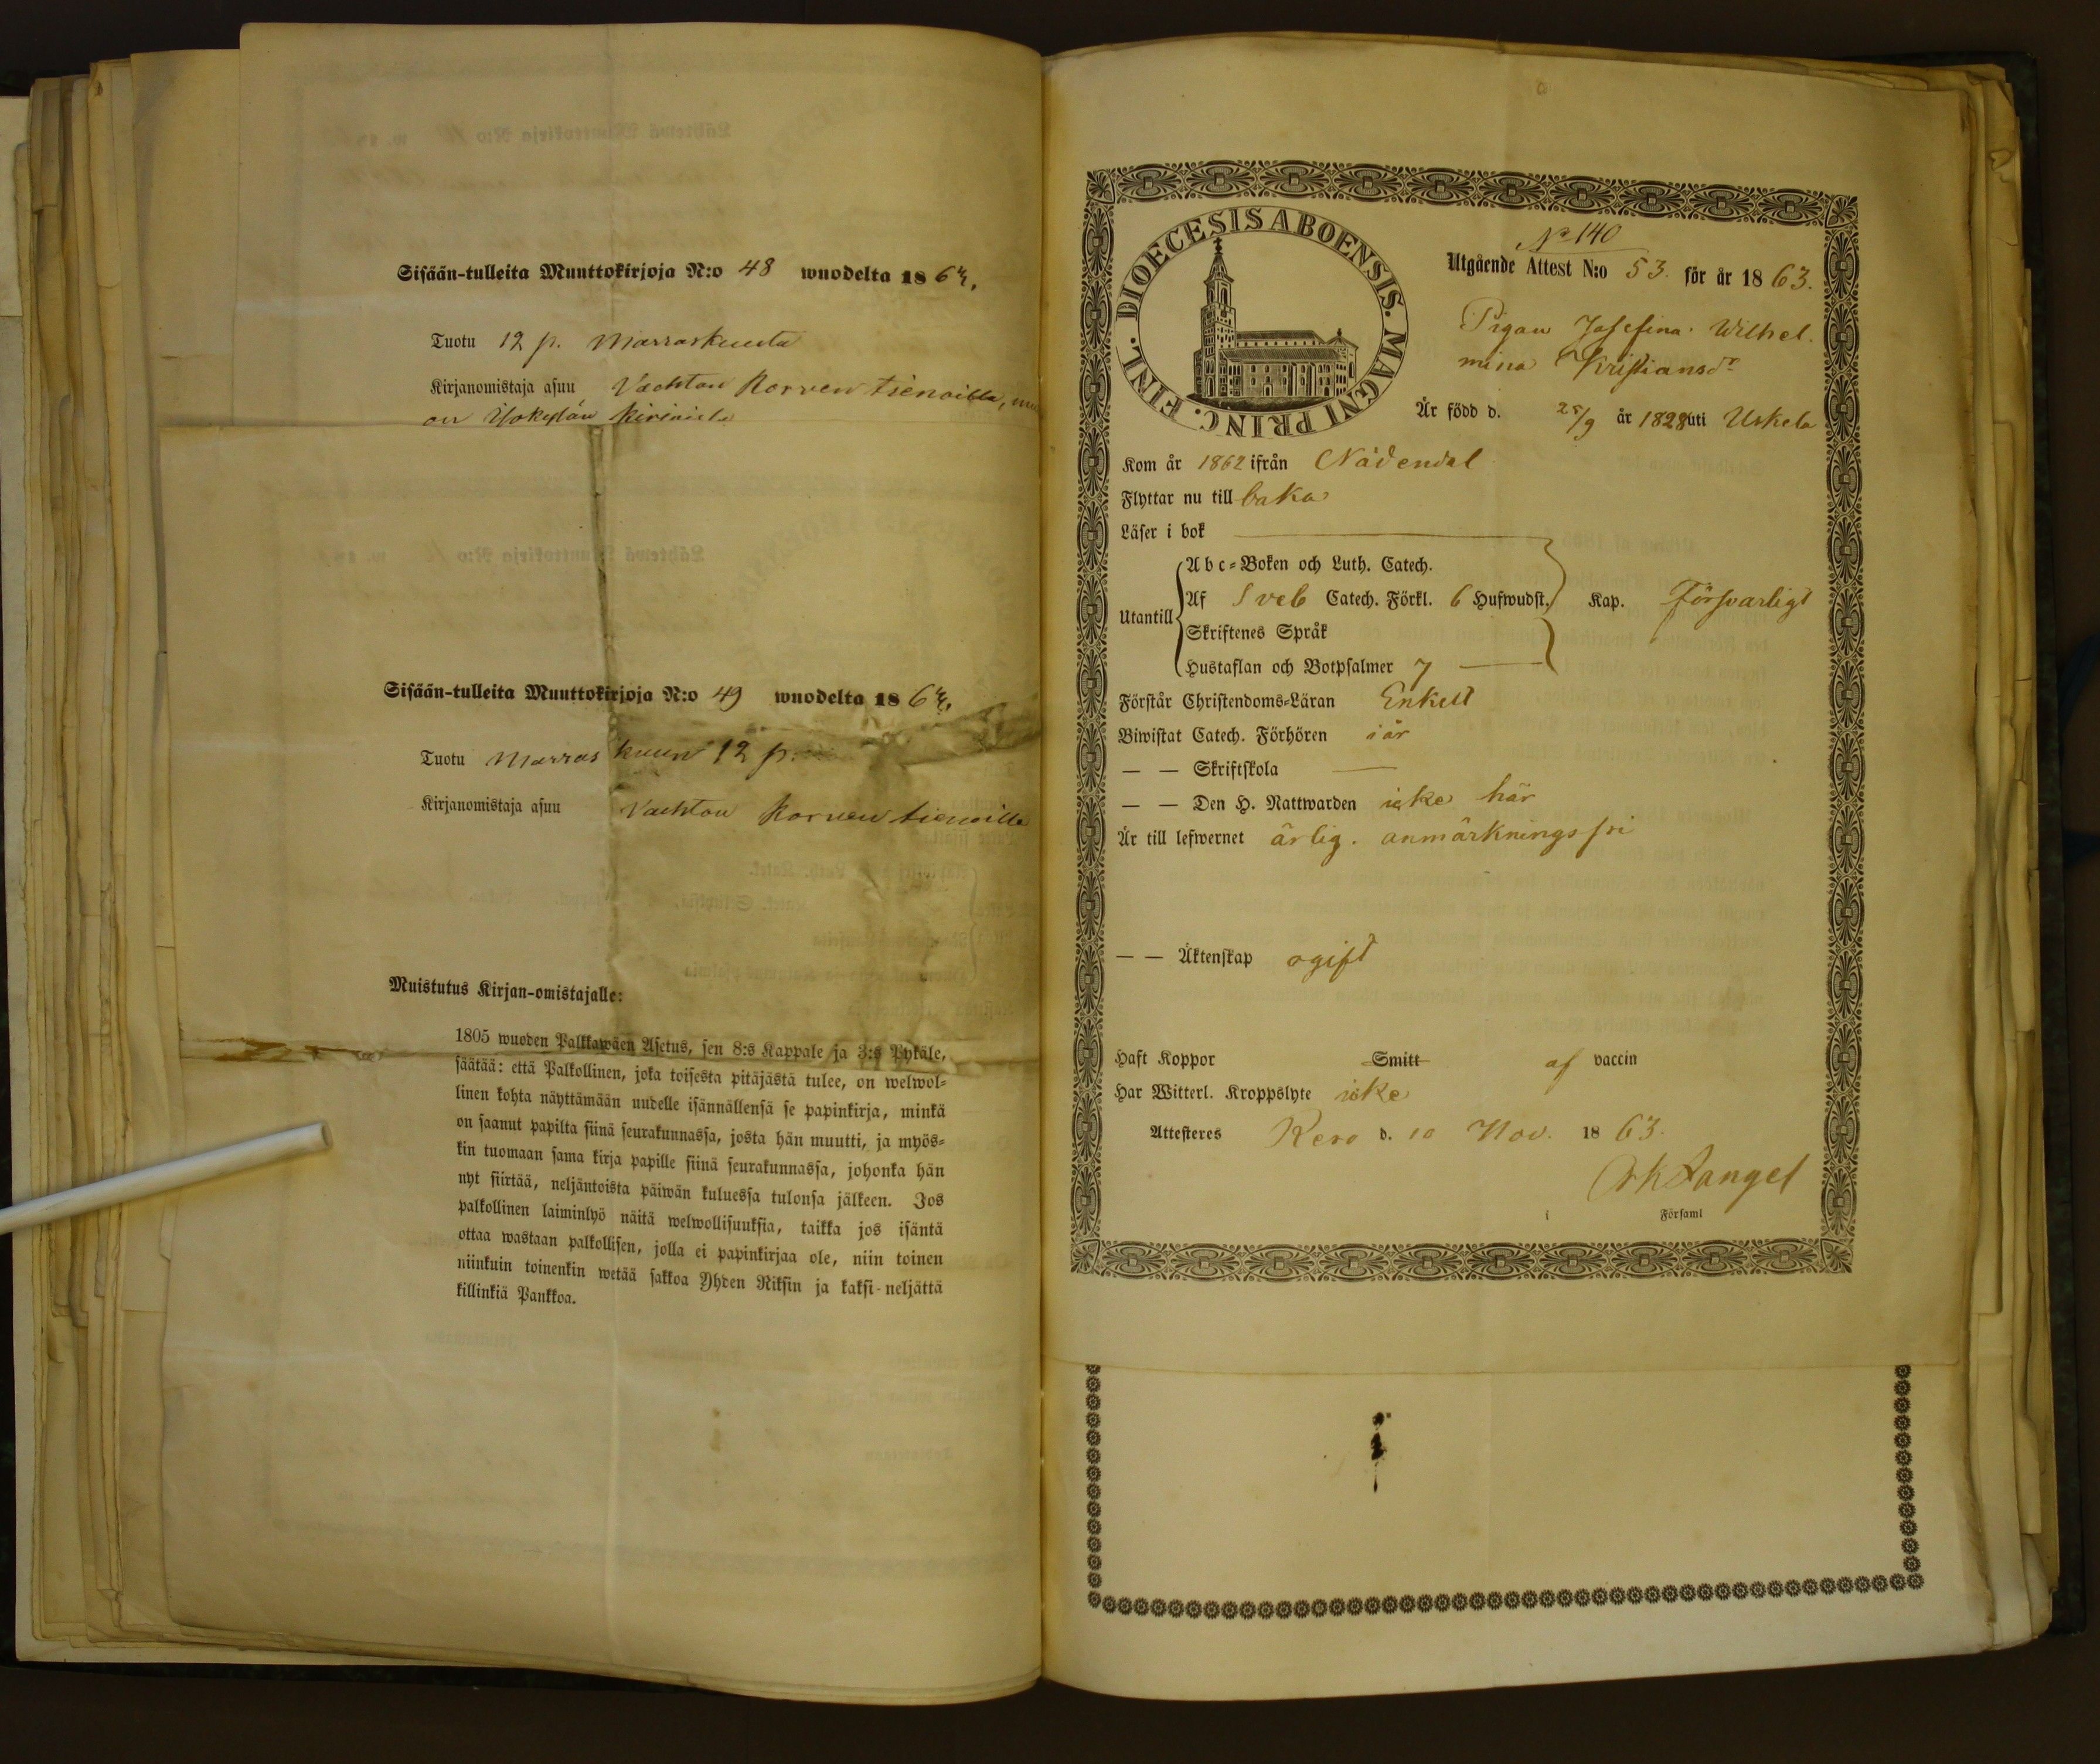 Sisään-tulleita Muuttokirjoja N:o 48 wuodelta 186
Tuotu 12 p. Marraskuuta
Kirjanomistaja asuu Vachtan Korven tienoilla,
on Isokylän
Sisään-tulleita Muuttokirjoja N:o 49 wuodelta 186
Tuotu Marraskuun 12 p.
Kirjanomistaja asuu Vachton Korven tienoilla
Muistutus Kirjan-omistajalle:
1805 wuoden Palkkawäen Asetus, sen 8:s Kappale ja 3:s Pykäle,
säätää: että Palkollinen, joka toisesta pitäjästä tulee, on welwol=
linen kohta näyttämään uudelle isännällensä se papinkirja, minkä
on saanut papilta siinä seurakunnassa, josta hän muutti, ja myös=
kin tuomaan sama kirja papille siinä seurakunnassa, johonka hän
nyt siirtää, neljäntoista päiwän kuluessa tulonsa jälkeen. Jos
palkollinen laiminlyö näitä welwollisuuksia, taikka jos isäntä
ottaa wastaan palkollisen, jolla ei papinkirjaa ole, niin toinen
niinkuin toinenkin wetää sakkoa Yhden Riksin ja kaksi-neljättä
killinkiä Pankkoa.
DIOECESIS ABOENSIS. MAGNI PRINC. FINL.
No 140
Utgående Attest N:o 53. för år 1863.
Pigan Josefina Wilhel.
mina Kristiansdr
Är född d. 25/9 år 1828 uti Uskela
Kom år 1862 ifrån Nådendal
Flyttar nu till baka
Läser i bok
Utantill
Abc=Boken och Luth. Catech.
Af Sveb Catech. Förkl. 6 Hufwudst. Kap. Försvarligt
Skriftenes Språk
Hustaflan och Botpsalmer 7
Förstår Christendoms=Läran Enkelt
Biwistat Catech. Förhören i år
— — Skriftskola —
— — Den H. Nattwarden icke här
Är till lefwernet ärlig. anmärkningsfri
— — Äktenskap ogift
Haft Koppor Smitt af vaccin
Har Witterl. Kroppslyte icke
Attesteres d. 10 Nov. 1863.
i Församl